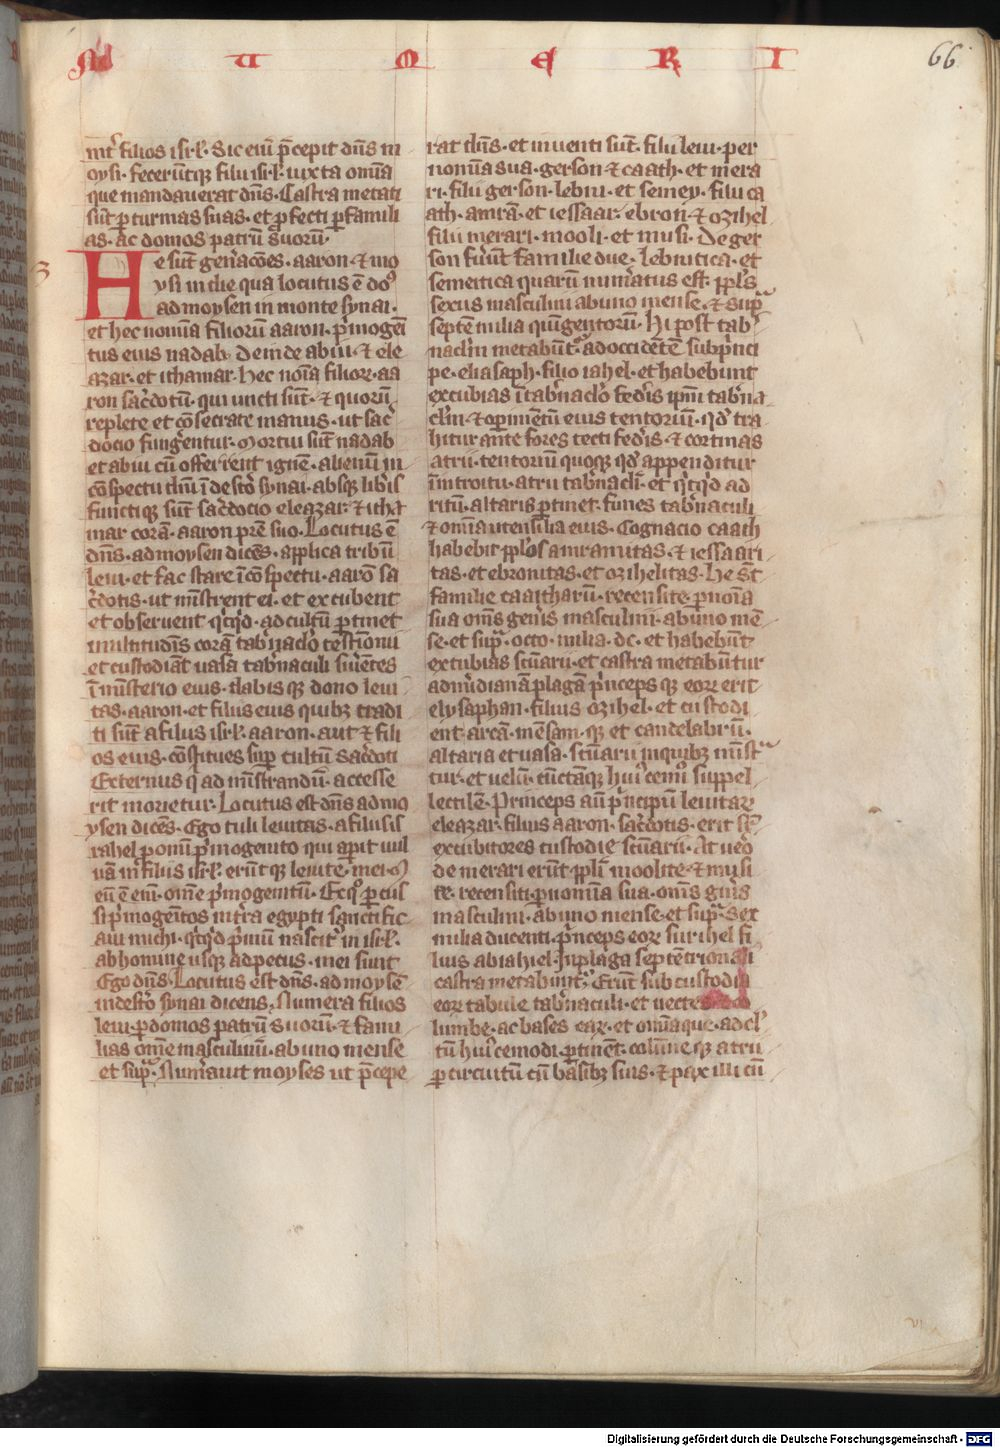 N U M E R I
66
int᷑ filios isr̄l. Sic eni᷑ p̄cepit dn̄s m
oysi. feceru᷑tq; filii isr̄l. iuxta om̄ia
que mandauerat dn̄s. Castra metati
su᷑t ꝑ turmas suas. et ꝓfecti ꝑ famili
as. ac domos patru᷑ suoru᷑.
3
He su᷑t gen̄acōes. aaron. ⁊ mo
ysi in die qua locutus ē do᷑s
ad moysen in monte synai.
et hec nomi᷑a filioru᷑ aaron. p̄mogeni᷑
tus eius nadab. deinde abiu. ⁊ ele
azar. et ithamar. Hec noi᷑a filioꝝ. aa
ron sac̄dotu᷑. qui uncti su᷑t. ⁊ quoru᷑
replete et cōsecrate manus. ut sac̄
docio funḡentur. Mortui su᷑t nadab
et abiu cu᷑ offerrent ignē. alienu᷑ in
cōspectu dn̄i ī desc̄to synai. absq; lib̄is
functiq; su᷑t sac̄docio eleazar. ⁊ itha
mar corā. aaron pr̄e suo. Locutus ē
dn̄s. ad moysen dicēs. applica tribu᷑
leui. et fac stare ī cōspectu. aarō sa
c̄dotis. ut mi᷑strent ei. et excubent
et obseruent qͥcqͥd. ad cultu᷑ ꝑtinet
multitudi᷑s corā tab̄nac̄lo testi᷑onii
et custodiāt uasa tab̄naculi su᷑ētes
ī mi᷑sterio eius. dabisq; dono leui
tas. aaron. et filiis eius quibꝫ tradi
ti su᷑t a filiis isr̄l. aaron. aut᷑ ⁊ fili
os eius. cōstitues suꝑ cultu᷑ sac̄dotii
Externus q̄ ad mi᷑strandu᷑. accesse
rit morietur. Locutus est dn̄s ad mo
ysen dicēs. Ego tuli leuitas. a filiis is
rahel ꝓ omi᷑ p̄mogenito qui aꝑit uul
uā in filiis isr̄l. eru᷑tq; leuite. mei. m
eu᷑ ē eni᷑. om̄e p̄mogenitu᷑. Ex qͦ ꝑcus
si p̄mogēitos in t̄ra egypti sanctific
aui michi. qͥcqͥd p̄mu᷑ nascit᷑ in isr̄l.
ab homine usq; ad pecus. mei sunt
Ego dn̄s. Locutus est dn̄s. ad moysē
in desc̄to synai dicens. Numera filios
leui. ꝑ domos patru᷑ suoru᷑. ⁊ fami
lias om̄e masculinu᷑. ab uno mense
et sup̄. Num̄auit moyses ut p̄cepe
rat dn̄s. et inuenti su᷑t. filii leui. per
nomi᷑a sua. gerson. ⁊ caath. et mera
ri. filii gerson. lebni. et semey. filii ca
ath. amrā. et iessaar. ebron. ⁊ ozihel
filii merari. mooli. et musi. De ger
son fu᷑ut familie due. lebnitica. et
semeitica quaru᷑ num̄atus est. ppl̄s
sexus masculini ab uno mense. ⁊ sup̄
septē milia quīgentoru᷑. Hi post tab̄
nac̄lm metabu᷑t᷑. ad occidētē sub p̄nci
pe. eliasaph. filio iahel. et habebunt
excubias ī tab̄nac̄lo fed̄is ip̄m tab̄na
c̄lm. ⁊ oꝑimētu᷑ eius tentoriu᷑. qd̄ tra
hitur ante fores tecti fed̄is. ⁊ cortinas
atrii. tentoriu᷑ quoq; qd̄ appenditur
ī introitu. atrii tab̄nac̄li. et qͥcqͥd ad
ritu᷑. altaris ꝑtinet. funes tab̄naculi
⁊ om̄ia utensilia eius. Cognacio caath
habebit ppl̄os amramitas. ⁊ iessaari
tas. et ebronitas. et ozihelitas. He su᷑t
familie caatharu᷑. recensite. ꝑ noi᷑a
sua om̄s gen̄is masculini. ab uno mē
se. et sup̄. octo. milia. dc. et habebu᷑t
excubias sc̄uarii. et castra metabu᷑tur
ad m̄idianā plagā p̄ncepsq; eoꝝ erit
elysaphan. filius ozihel. et custodi
ent. arcā. mēsamq; et candelabru᷑.
altaria et uasa. sc̄uarii in quibꝫ mi᷑st̄
tur. et uelu᷑. cūctāq; hui᷑cemōi suppel
lectilē. Princeps au᷑t p̄ncipu᷑ leuitaꝝ
eleazar. filius aaron. sac̄dotis. erit su᷑
excubitores custodie sc̄uarii. At uero
de merari eru᷑t ppl̄i moolite. ⁊ musi
te. recensiti ꝑ nomi᷑a sua. om̄s gen̄is
masculini. ab uno mense. et sup̄. Sex
milia ducenti. p̄nceps eoꝝ surihel fi
lius abiahiel. In plaga septētrionali
castra metabunt᷑. Eru᷑t sub custodia
eoꝝ tabule tab̄naculi. et uectes
lumbe. ac bases eaꝝ. et om̄ia que. ad cl᷑
tu᷑ hui᷑cemodi. ꝑtinēt. colu᷑neq; atrii
ꝑ circuitu᷑ cu᷑ basibꝫ suis. ⁊ pax illi cu᷑
vi
Digitalisierung gefördert durch die Deutsche Forschungsgemeinschaft - DFG